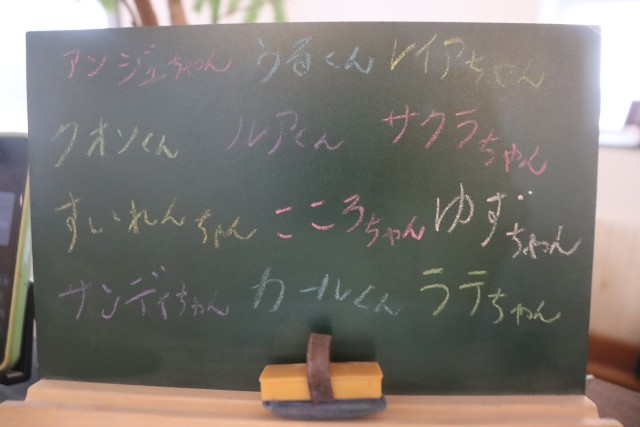 アンジュちゃん うるくん レイアちゃん
クオンくん ルアくん サクラちゃん
すいれんちゃん こころちゃん ゆずちゃん
サンディちゃん カールくん ラテちゃん